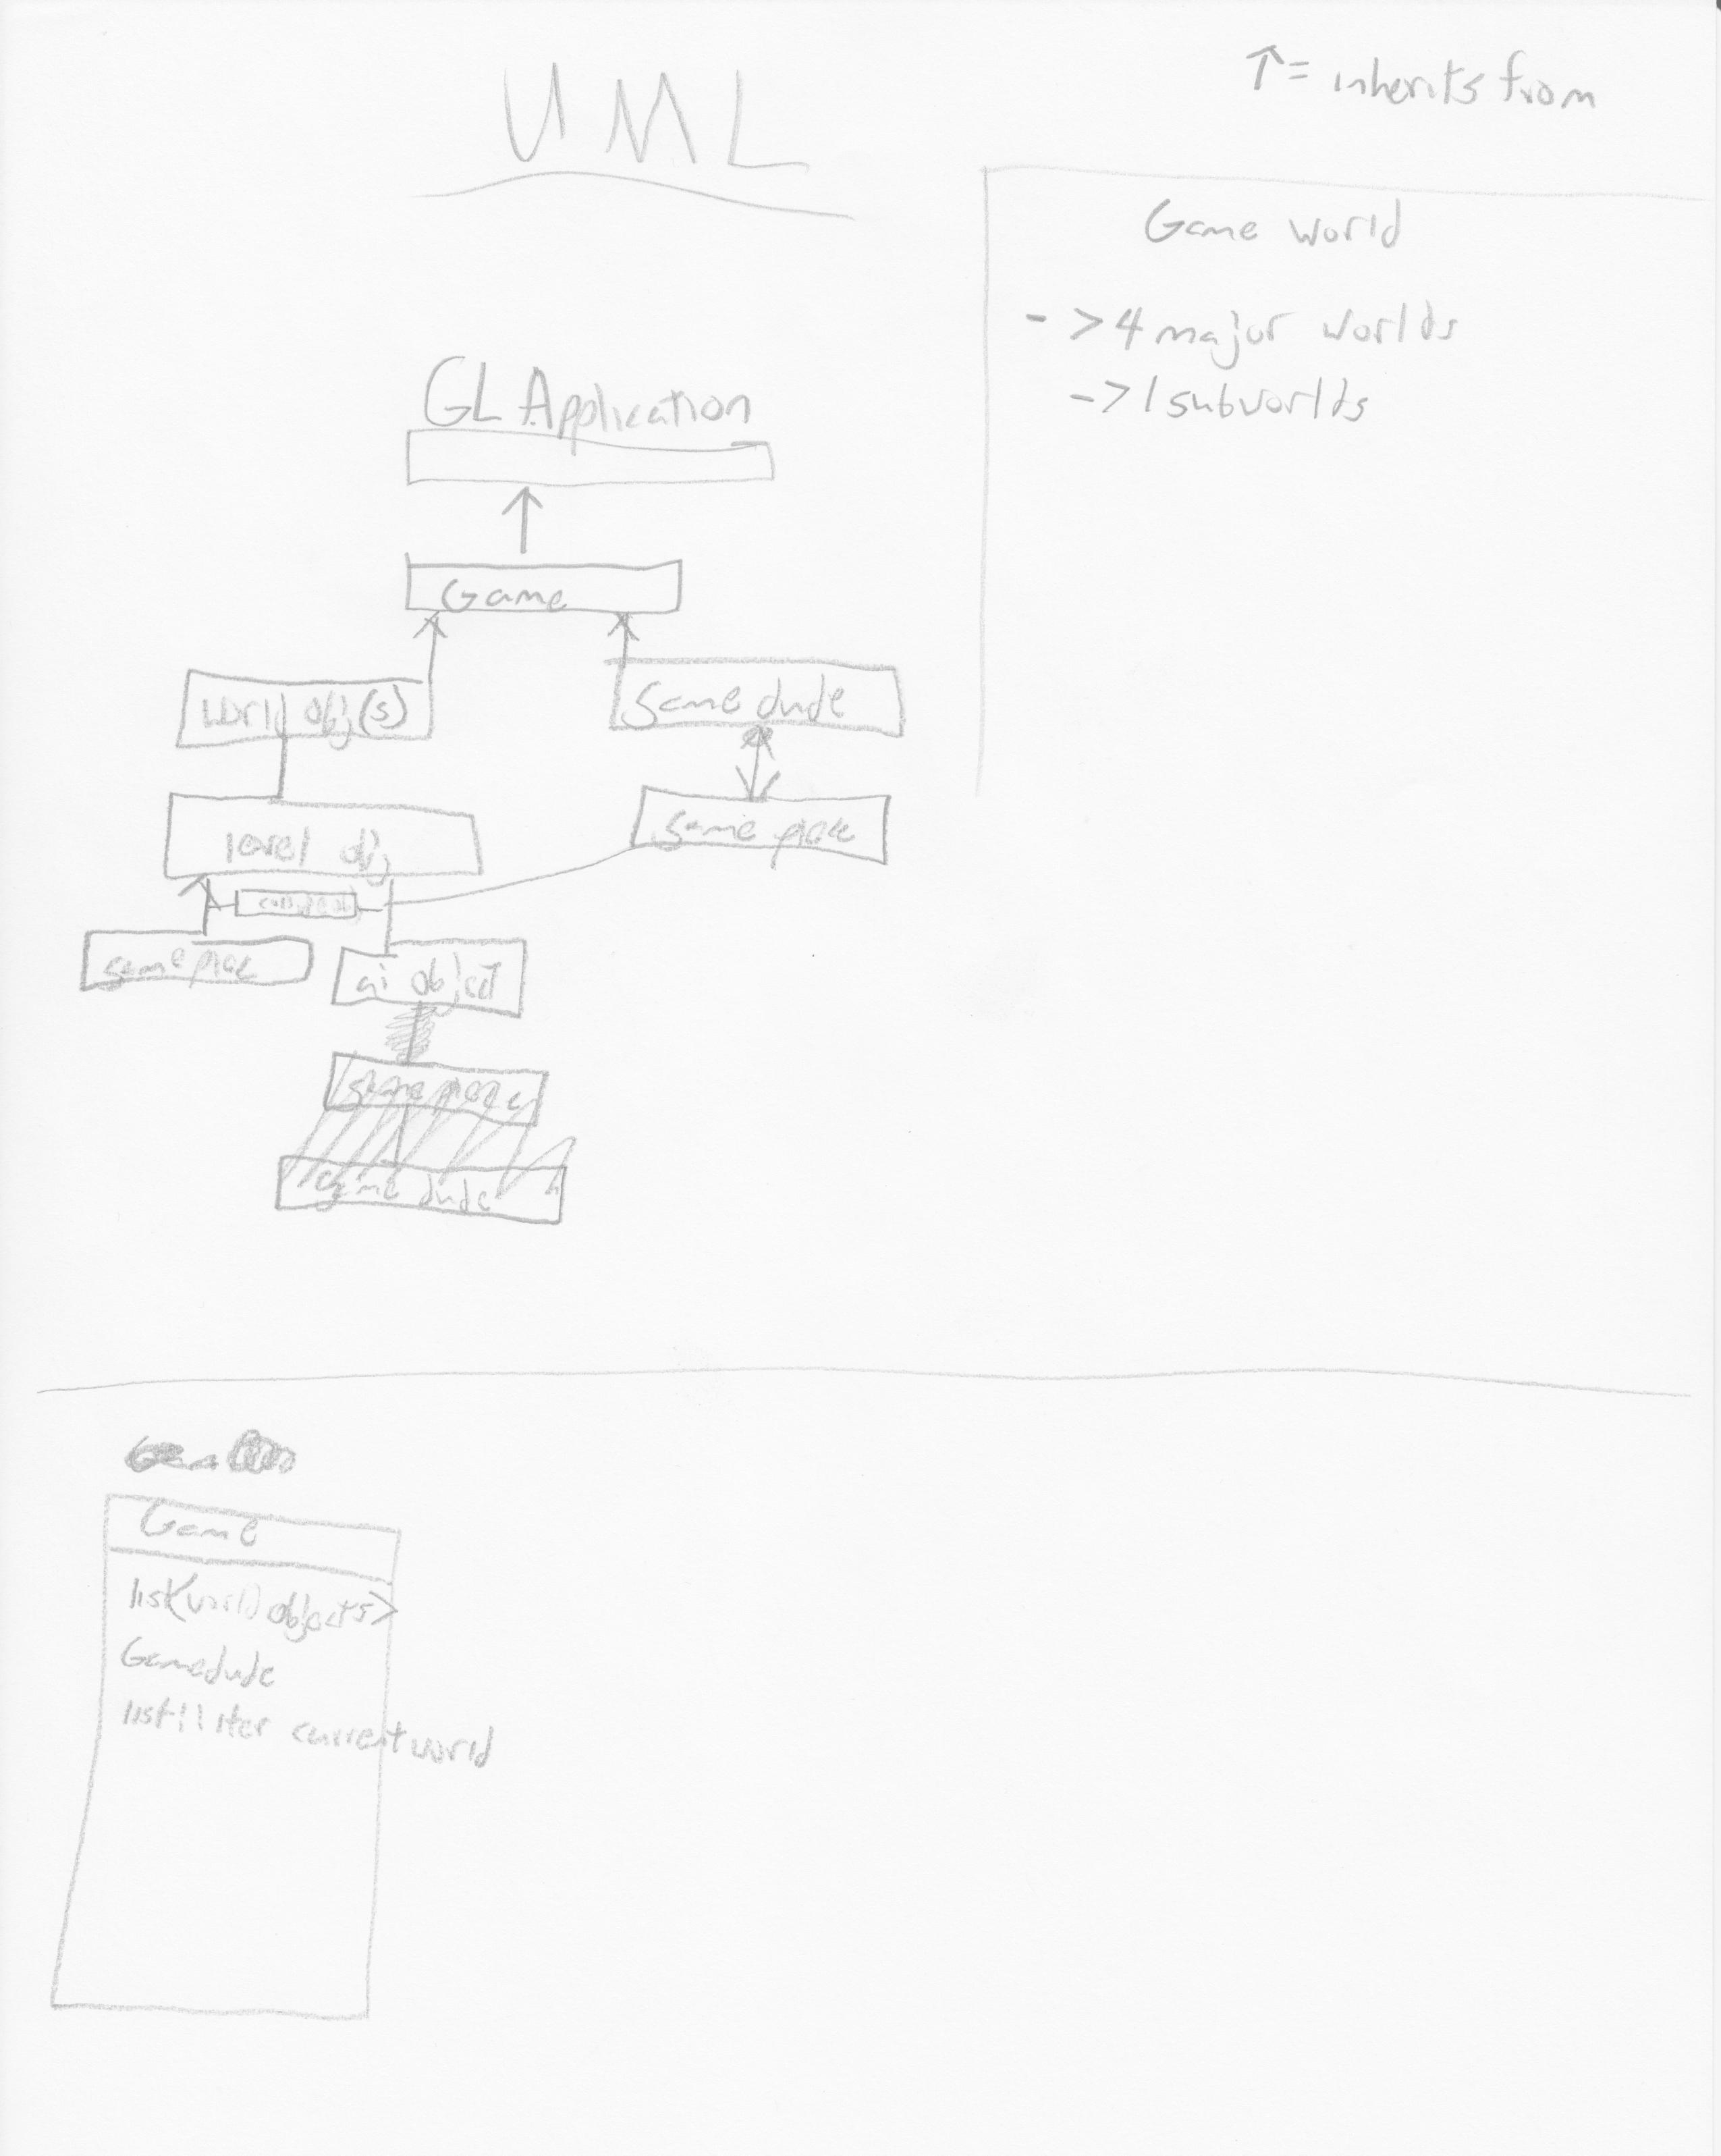 UML
↑= inherits from
Game world
-> 4 major worlds
-> 1 subworlds
GL Application
Game
world obj(s)
game dude
level obj
game piece
game piece
ai object
game piece
game dude
Game
list<world objects>
Gamedude
list::iter currentworld